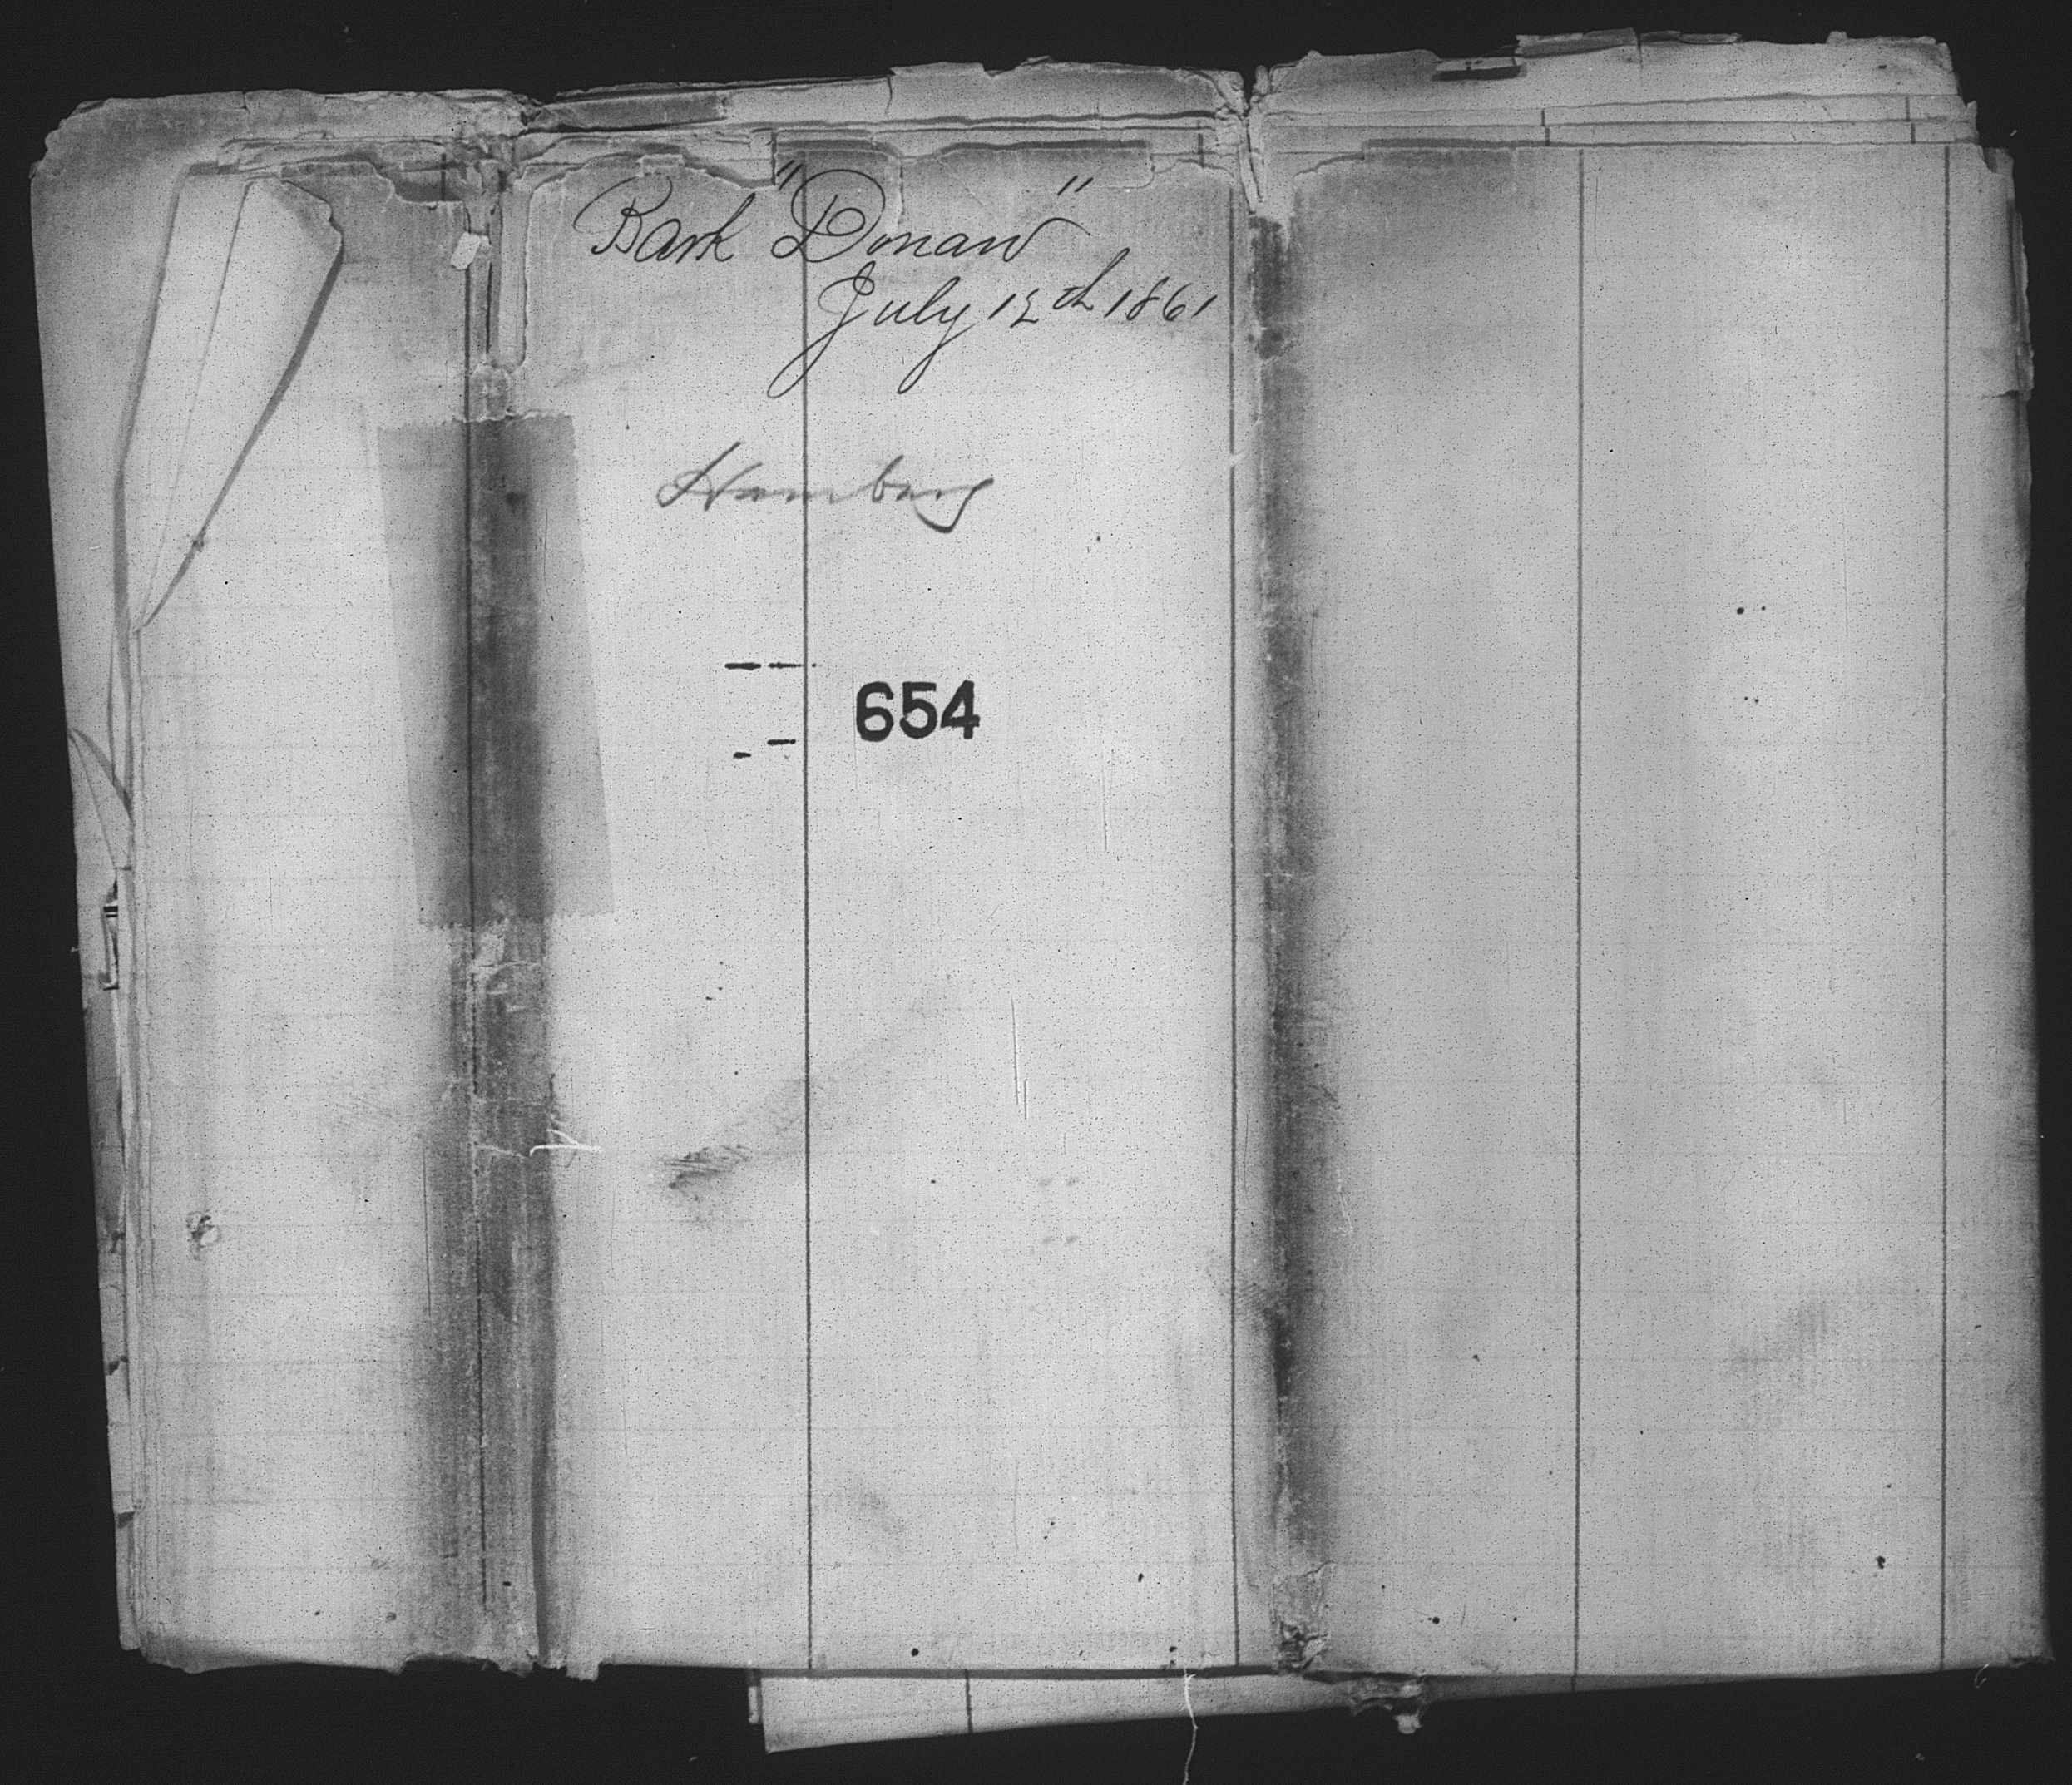 Bark "Donau"
July 12th 1861
Hamburg
654